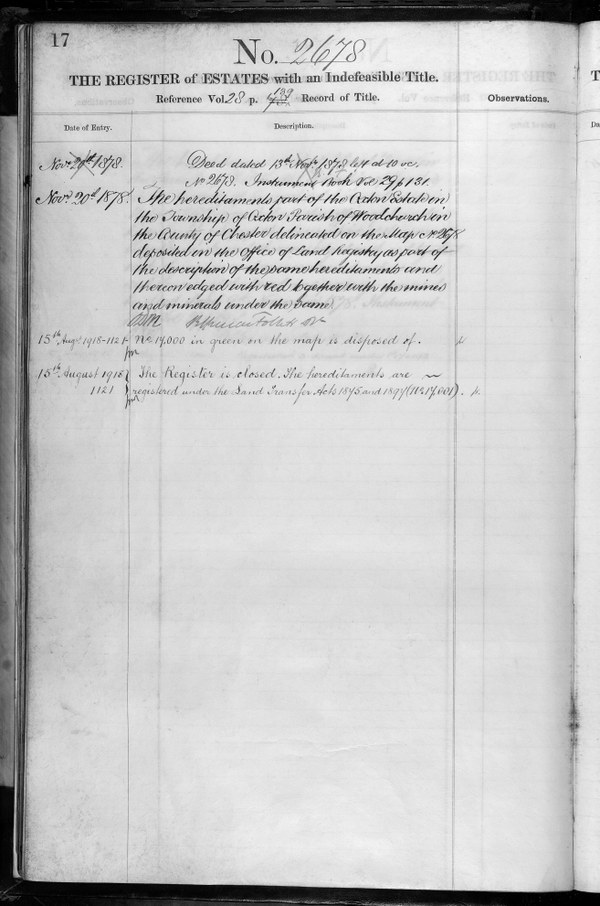 17
No. 2678
THE REGISTER of ESTATES with an Indefeasible Title.
Reference Vol. 28 p. 139 Record of Title.
Observations.
Date of Entry.
Description.
Novr 20th 1878.
Deed dated 13th Novr 1878 left at 10 oc.
No 2678. Instrument Book Vol 29 p 131.
Novr 20th 1878.
The hereditaments part of the Oxton Estate in
the Township of Oxton Parish of Woodchurch in
the County of Chester delineated on the Map No 2678
deposited in the Office of Land Registry as part of
the description of the same hereditaments and
thereon edged with red together with the mines
and minerals under the same
15th Augt 1918-1121
No. 17,000 in green on the map is disposed of.
15th August 1918
The Register is closed. The hereditaments are
1121
registered under the Land Transfer Acts 1875 and 1897 (No. 17,001).